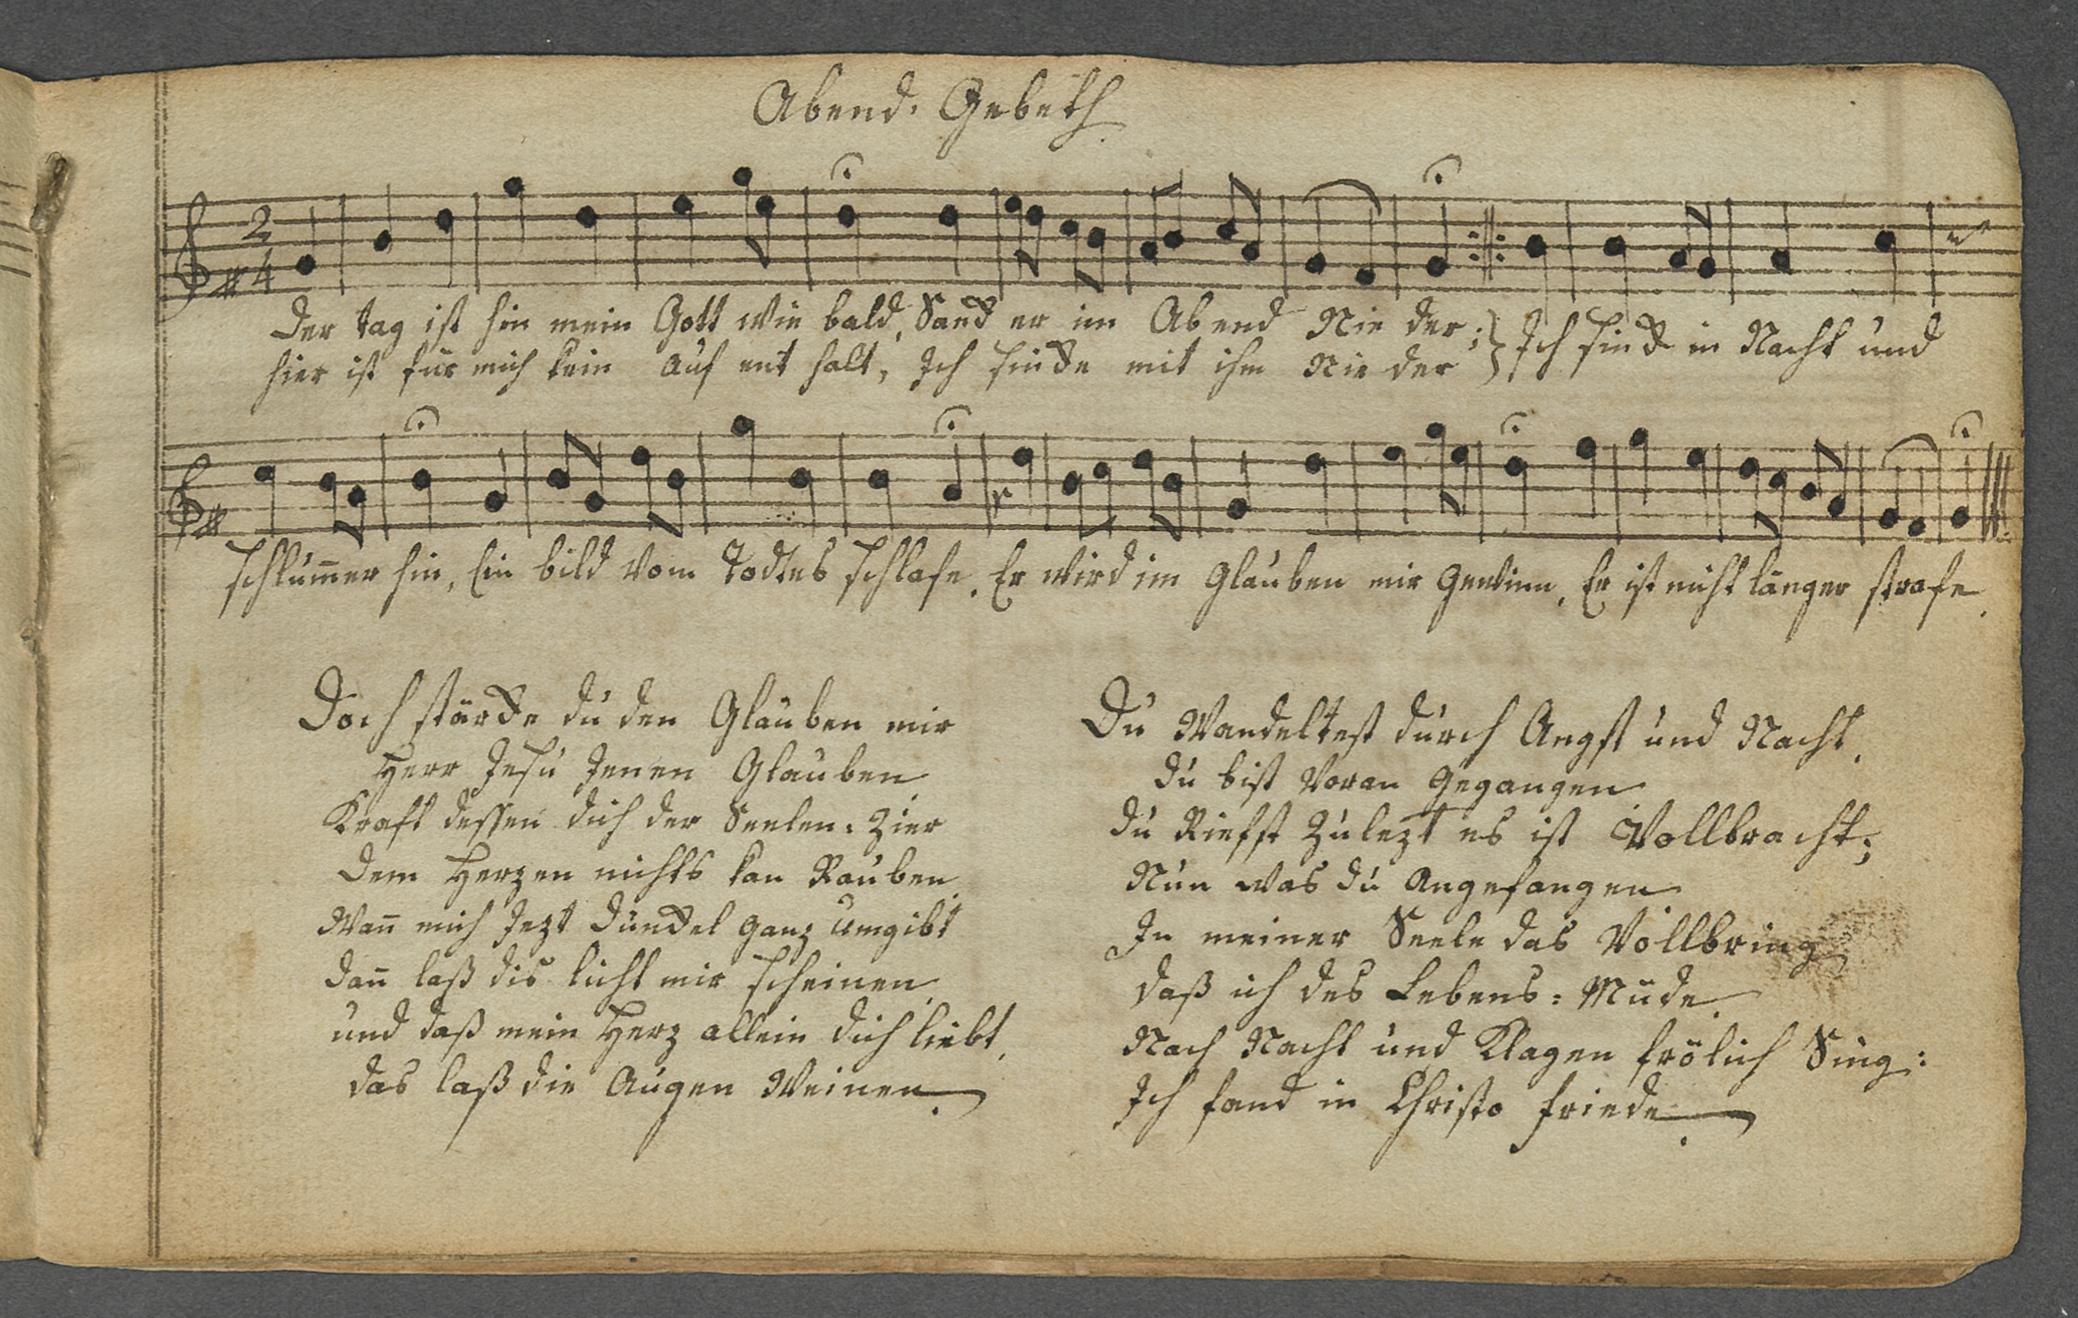 Abend. Gebeth
2
4
Der tag ist hin mein Gott wie bald, Sanck er im Abend Nie der;
hier ist für mich kein Auf ent halt, Ich sincke mit ihm Nie der
Ich sinck in Nacht und
schlum̄er hin, Ein bild Vom Todtes schlafe. Er wird im Glauben mir Gewinn, Er ist nicht länger strafe.
Doch stärcke du den Glauben mir
Herr Jesu Jenen Glauben
Kraft dessen dich der Seelen: Zier
Dem Herzen nichts kan Rauben.
Wan̄ mich Jezt Dunckel ganz Umgibt
dan̄ laß dis licht mir scheinen
und daß mein Herz allein dich liebt,
das laß die Augen Weinen.
Du Wandeltest durch Angst und Nacht,
du bist Voran Gegangen
du Riefst Zulezt es ist Vollbracht;
Nun was du Angefangen
In meiner Seele das Vollbring
daß ich des Lebens: Müde.
Nach Nacht und Klagen frölich Sing:
Ich fand in Christo friede.